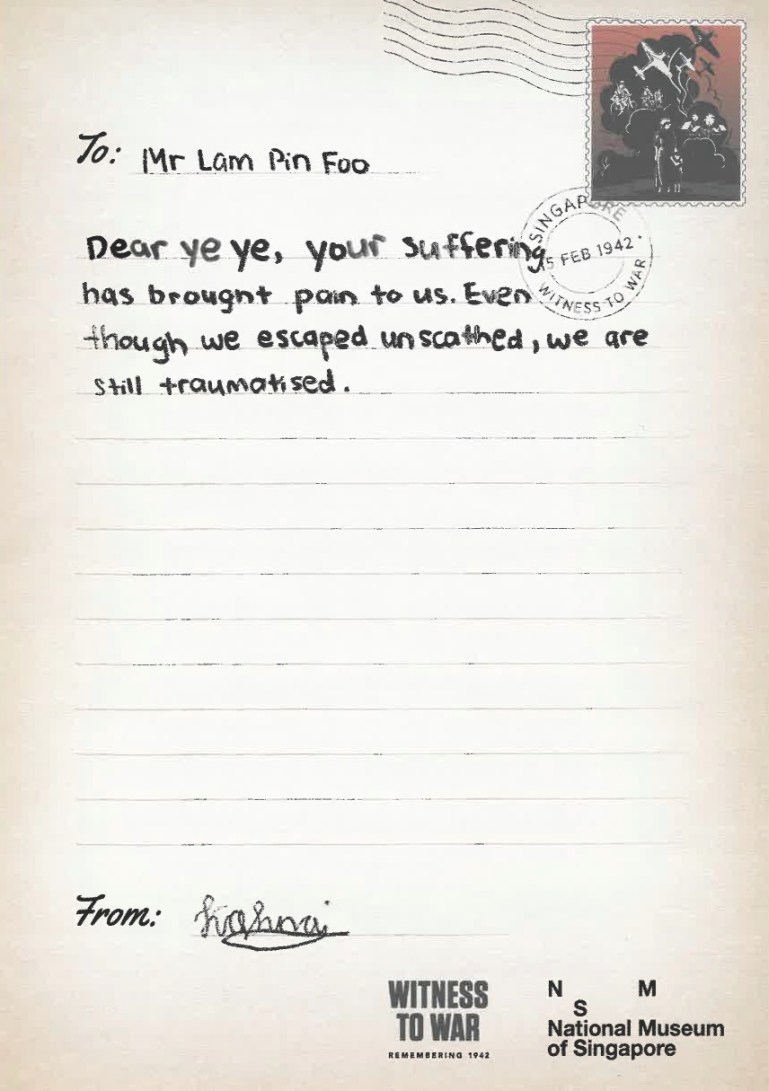 To: Mr Lam Pin Foo
SINGAPORE
15 FEB 1942
WITNESS TO WAR
Dear ye ye, your suffering
has brought pain to us. Even
though we escaped unscathed, we are
still traumatised.
From:
WITNESS
TO WAR
REMEMBERING 1942
N M
S
National Museum
of Singapore